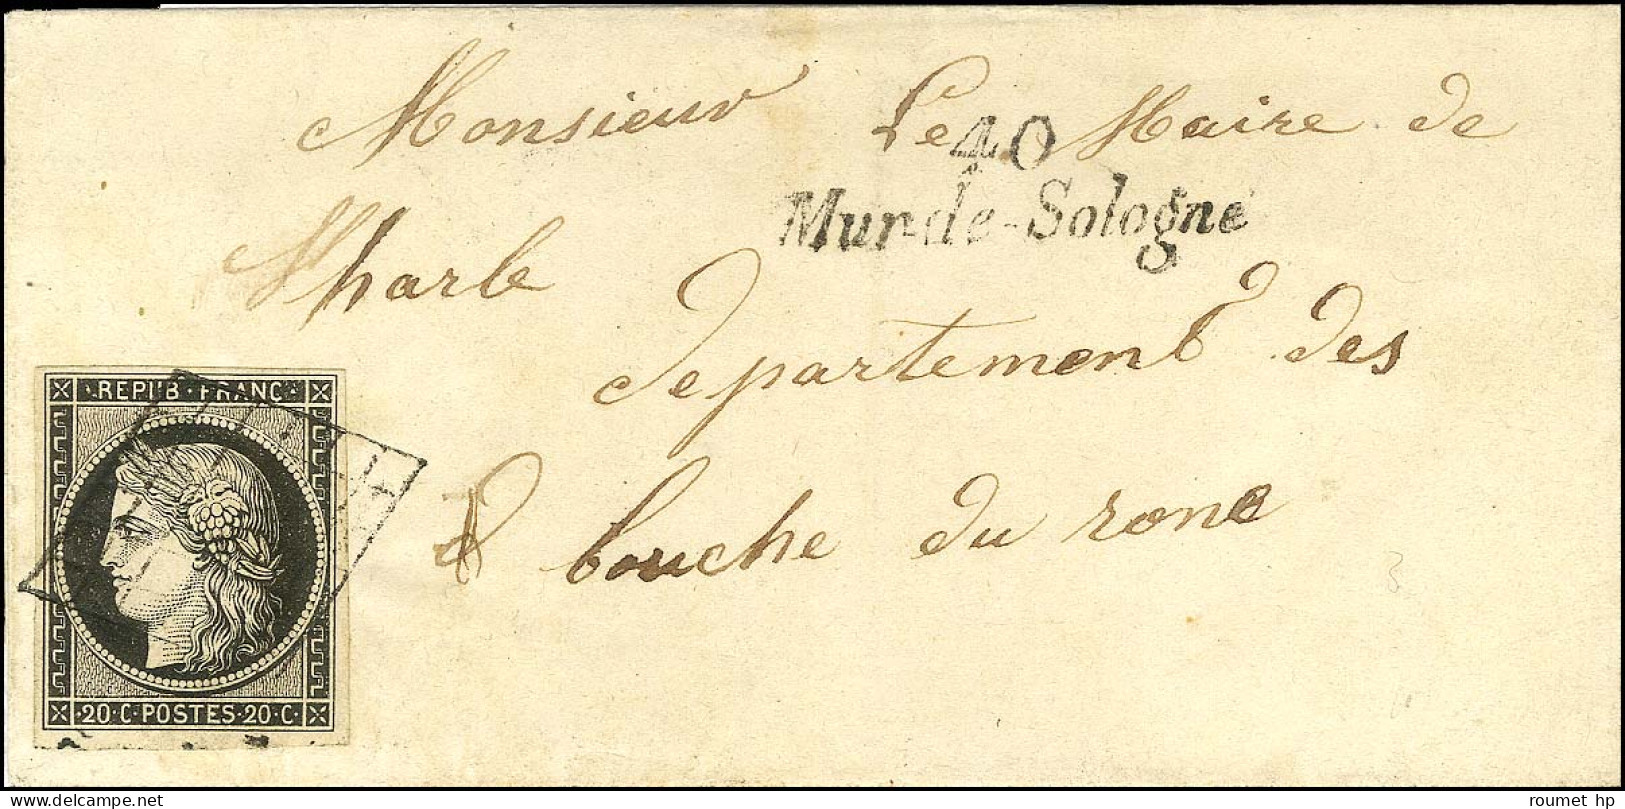 Monsieur Le Maire de
40
Mur-de-Sologne
departement des
bouche du rone
REPUB · FRANC ·
· 20 · C · POSTES · 20 · C ·
roumet hp